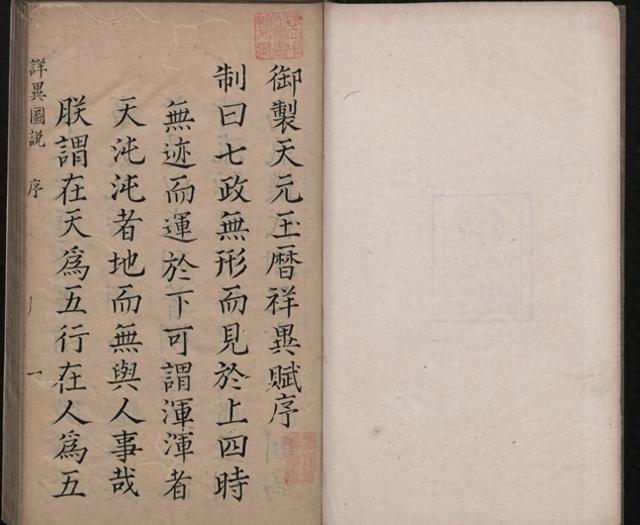 御製天元玉曆祥異賦序
制曰七政無形而見於上四時
無迹而運於下可謂渾渾者
天沌沌者地而無與人事哉
朕謂在天爲五行在人爲五
詳異圖說 序 一